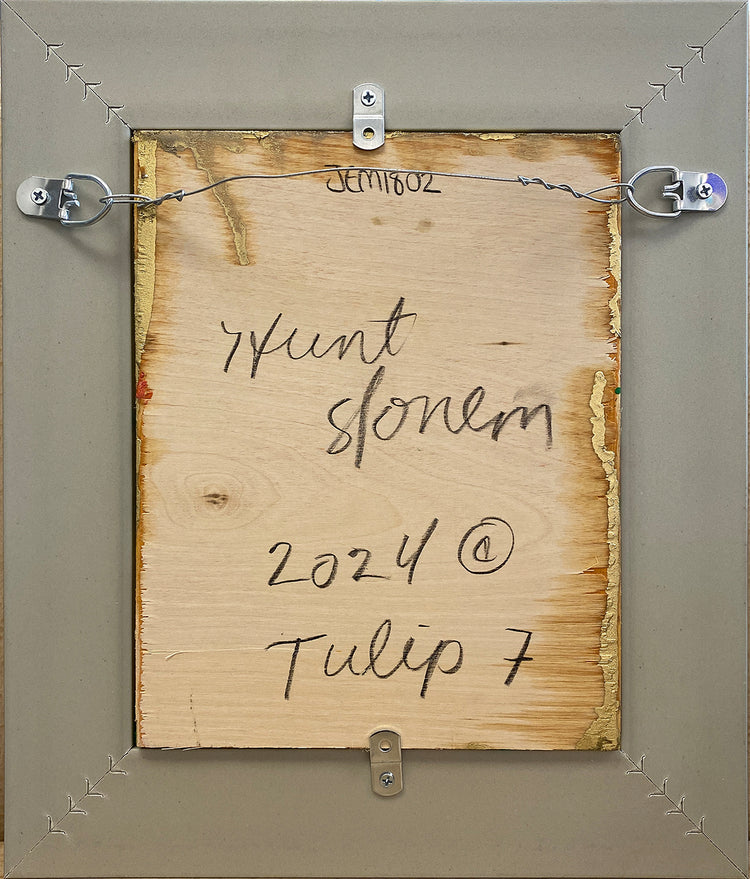 JEM1802
Hunt
slonem
2024 ©
Tulip 7